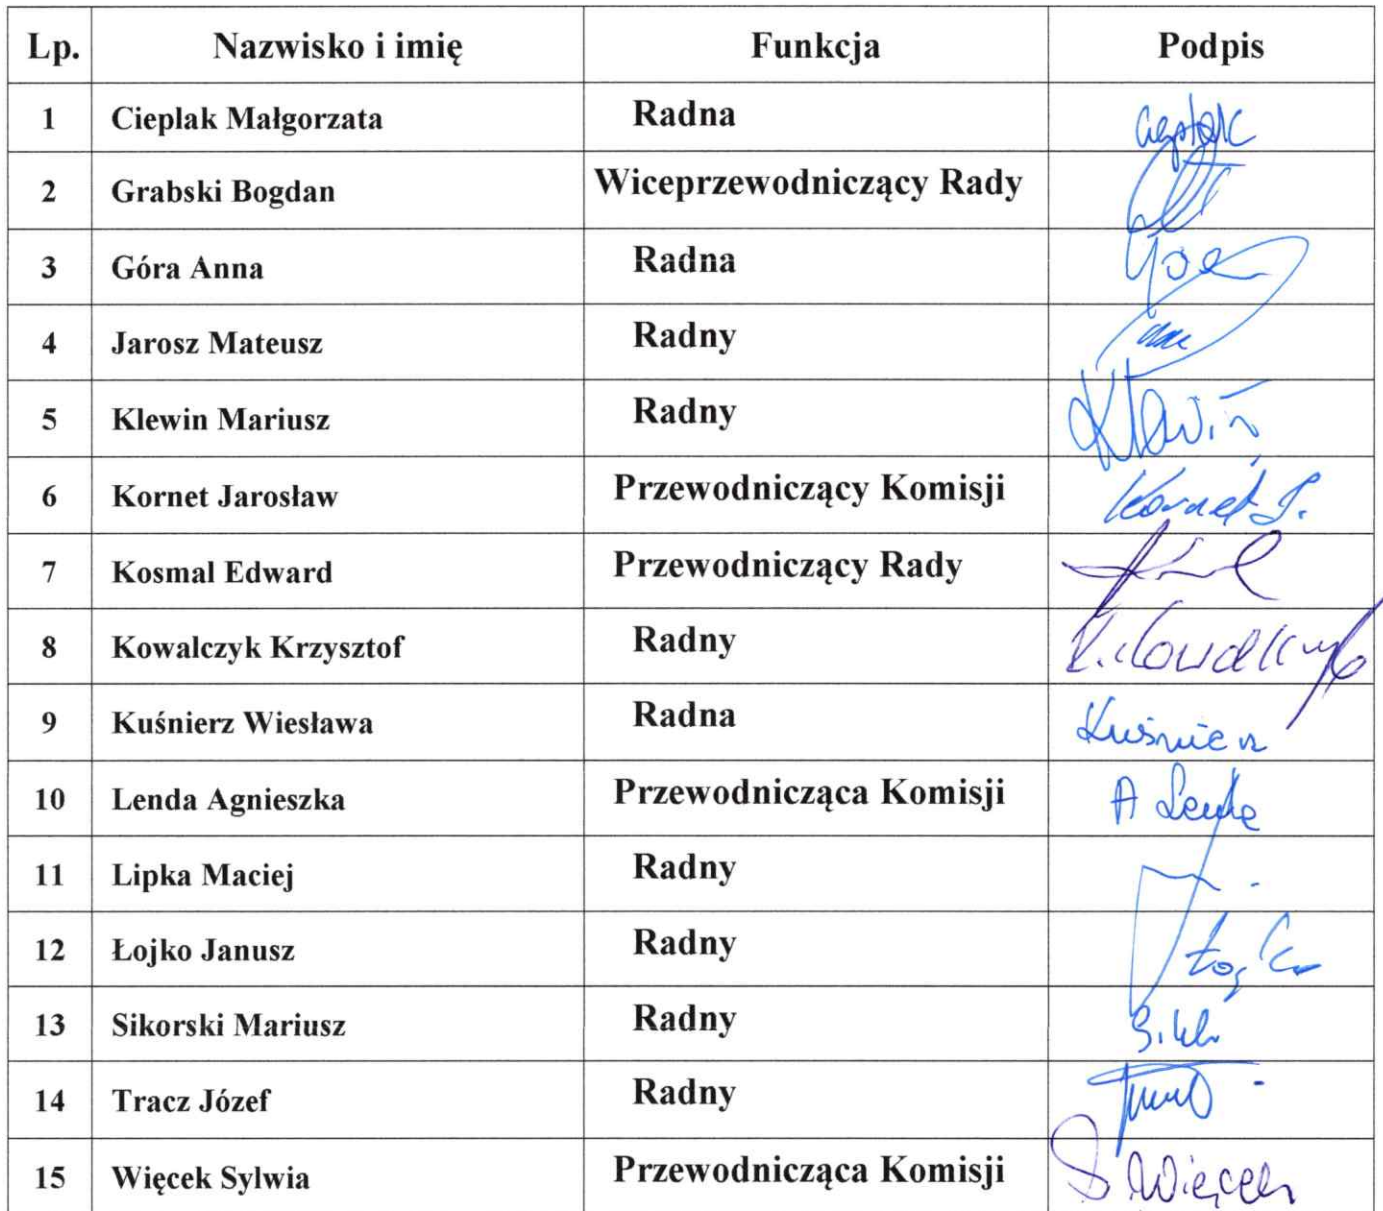 Lp. Nazwisko i imię Funkcja Podpis
1 Cieplak Małgorzata Radna
2 Grabski Bogdan Wiceprzewodniczący Rady
3 Góra Anna Radna
4 Jarosz Mateusz Radny
5 Klewin Mariusz Radny
6 Kornet Jarosław Przewodniczący Komisji Kornet J.
7 Kosmal Edward Przewodniczący Rady
8 Kowalczyk Krzysztof Radny K. Kowalczyk
9 Kuśnierz Wiesława Radna Kuśnierz
10 Lenda Agnieszka Przewodnicząca Komisji A Lenda
11 Lipka Maciej Radny
12 Łojko Janusz Radny
13 Sikorski Mariusz Radny
14 Tracz Józef Radny
15 Więcek Sylwia Przewodnicząca Komisji S. Więcek